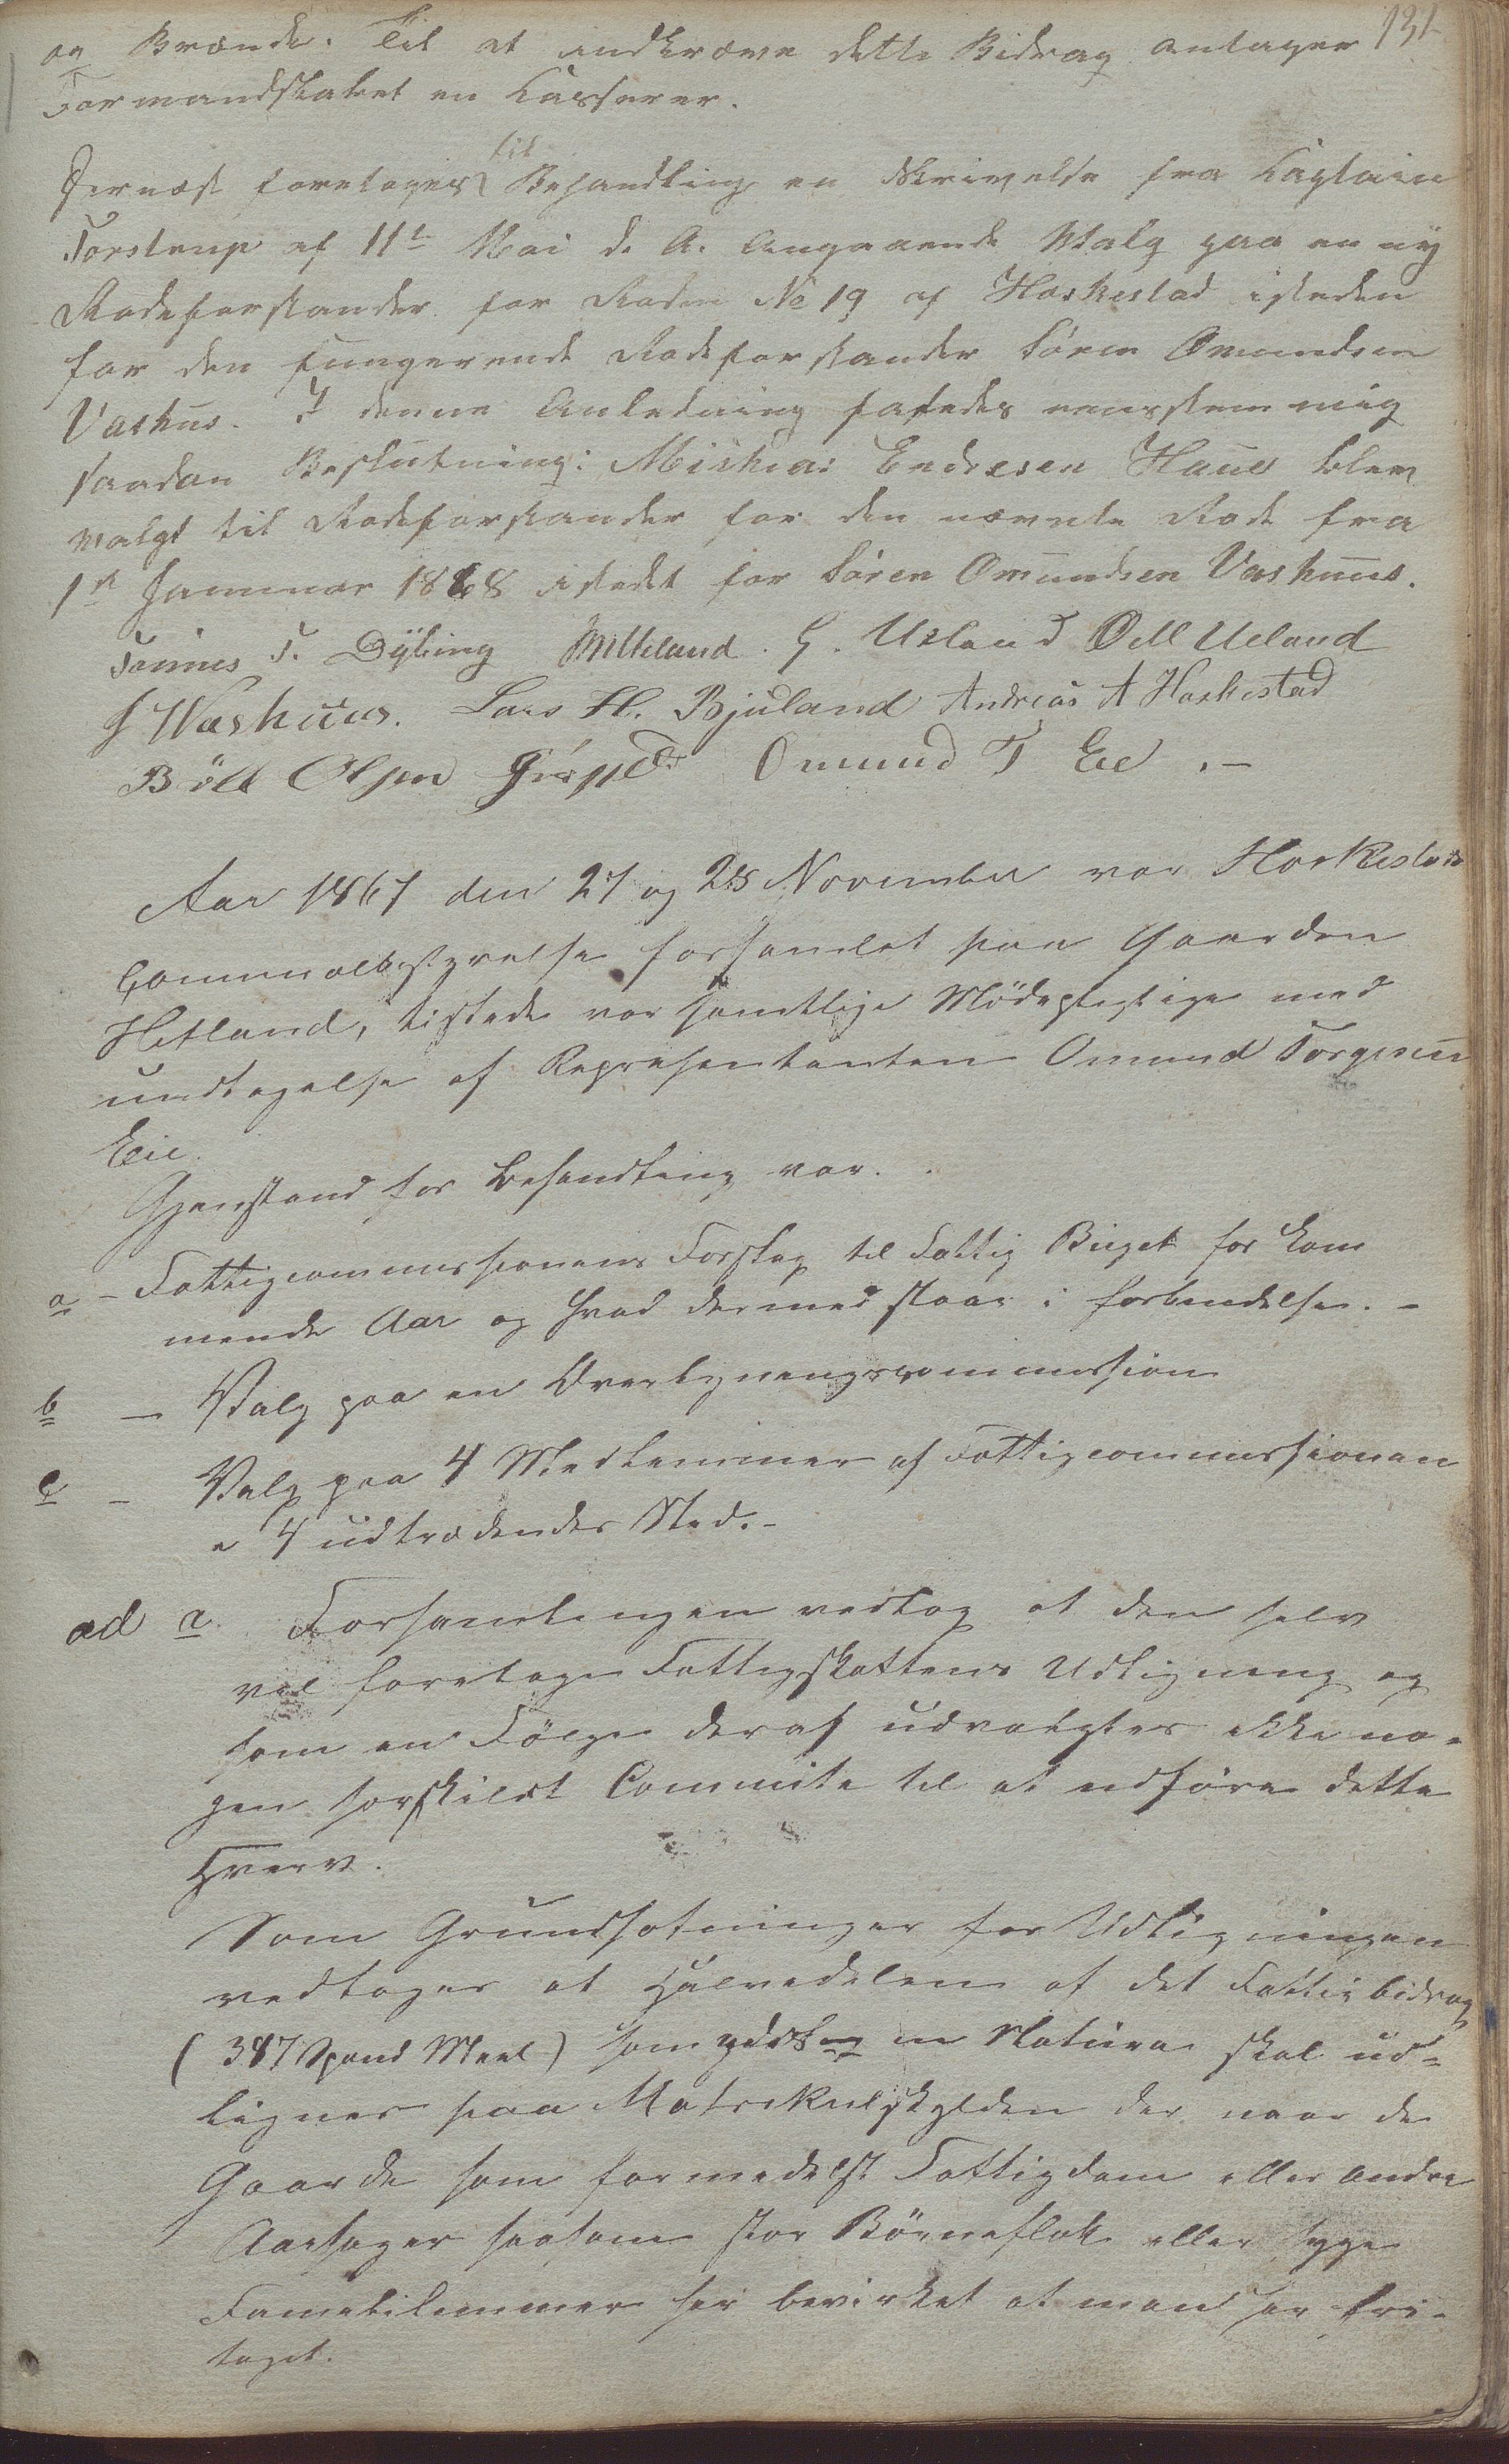 131
og Brænde. Til at indkræve dette Bidrag antager
Formandskabet en Kasserer.
til
Dernæst foretages Behandling en Skrivelse fra Kaptain
Torstrup af 11t Mai d. A. Angaaende Valg paa en ny
Rodeforstander for Roden No 19 af Haskestad isteden
for den fungerende Rodeforstander Sören Omundsen
Vashus. I denne Anledning fattedes eenstemmig
saadan Beslutning: Mikkas Endresen Haue blev
valgt til Rodeforstander for den nævnte Rode fra
1st Januar 1868 istedet for Sören Omundsen Vashuus.
Tönnes T. Dÿbing MHeland. G. Ueland Odll Ueland
S Washuus. Lars H. Bjuland Andreas A Haskestad
Böll Olsen Omund T Eie .-
Aar 1867 den 27 og 28 November var Haskestads
Communalbestyrelse forsamlet paa Gaarden
Hetland, tilstede var samtlige Mödepligtige med
undtagelse af Representanten Omund Torgersen
Eie.
Gjenstand for Behandling var.
a - Fattigcommissionens Forslag til Fattig Buget for kom
mende Aar og hvad dermed staar i forbindelse. -
b - Valg paa en Overligningscommission
c - Valg paa 4 Medlemmer af Fattigcommissionen
i 4 udtrædendes Sted.-
ad a. Forsamlingen vedtog at den selv
vil foretage Fattigskattens Udligning og
som en Fölge deraf udvalgtes ikke no-
gen særskildt Commite til at udföre dette
Hverv.
Som Grundsætninger for Udligningen
vedtoges at Halvedelen af det Fattigbidrag
(387 Spand Meel) som ydes in Natura skal ud-
lignes paa Matrikulskylden der naar de
Gaarde som formedelst Fattigdom eller Andre
Aarsager saasom stor Börneflok eller syge
Famililemmer har bevirket at man har fri-
taget.